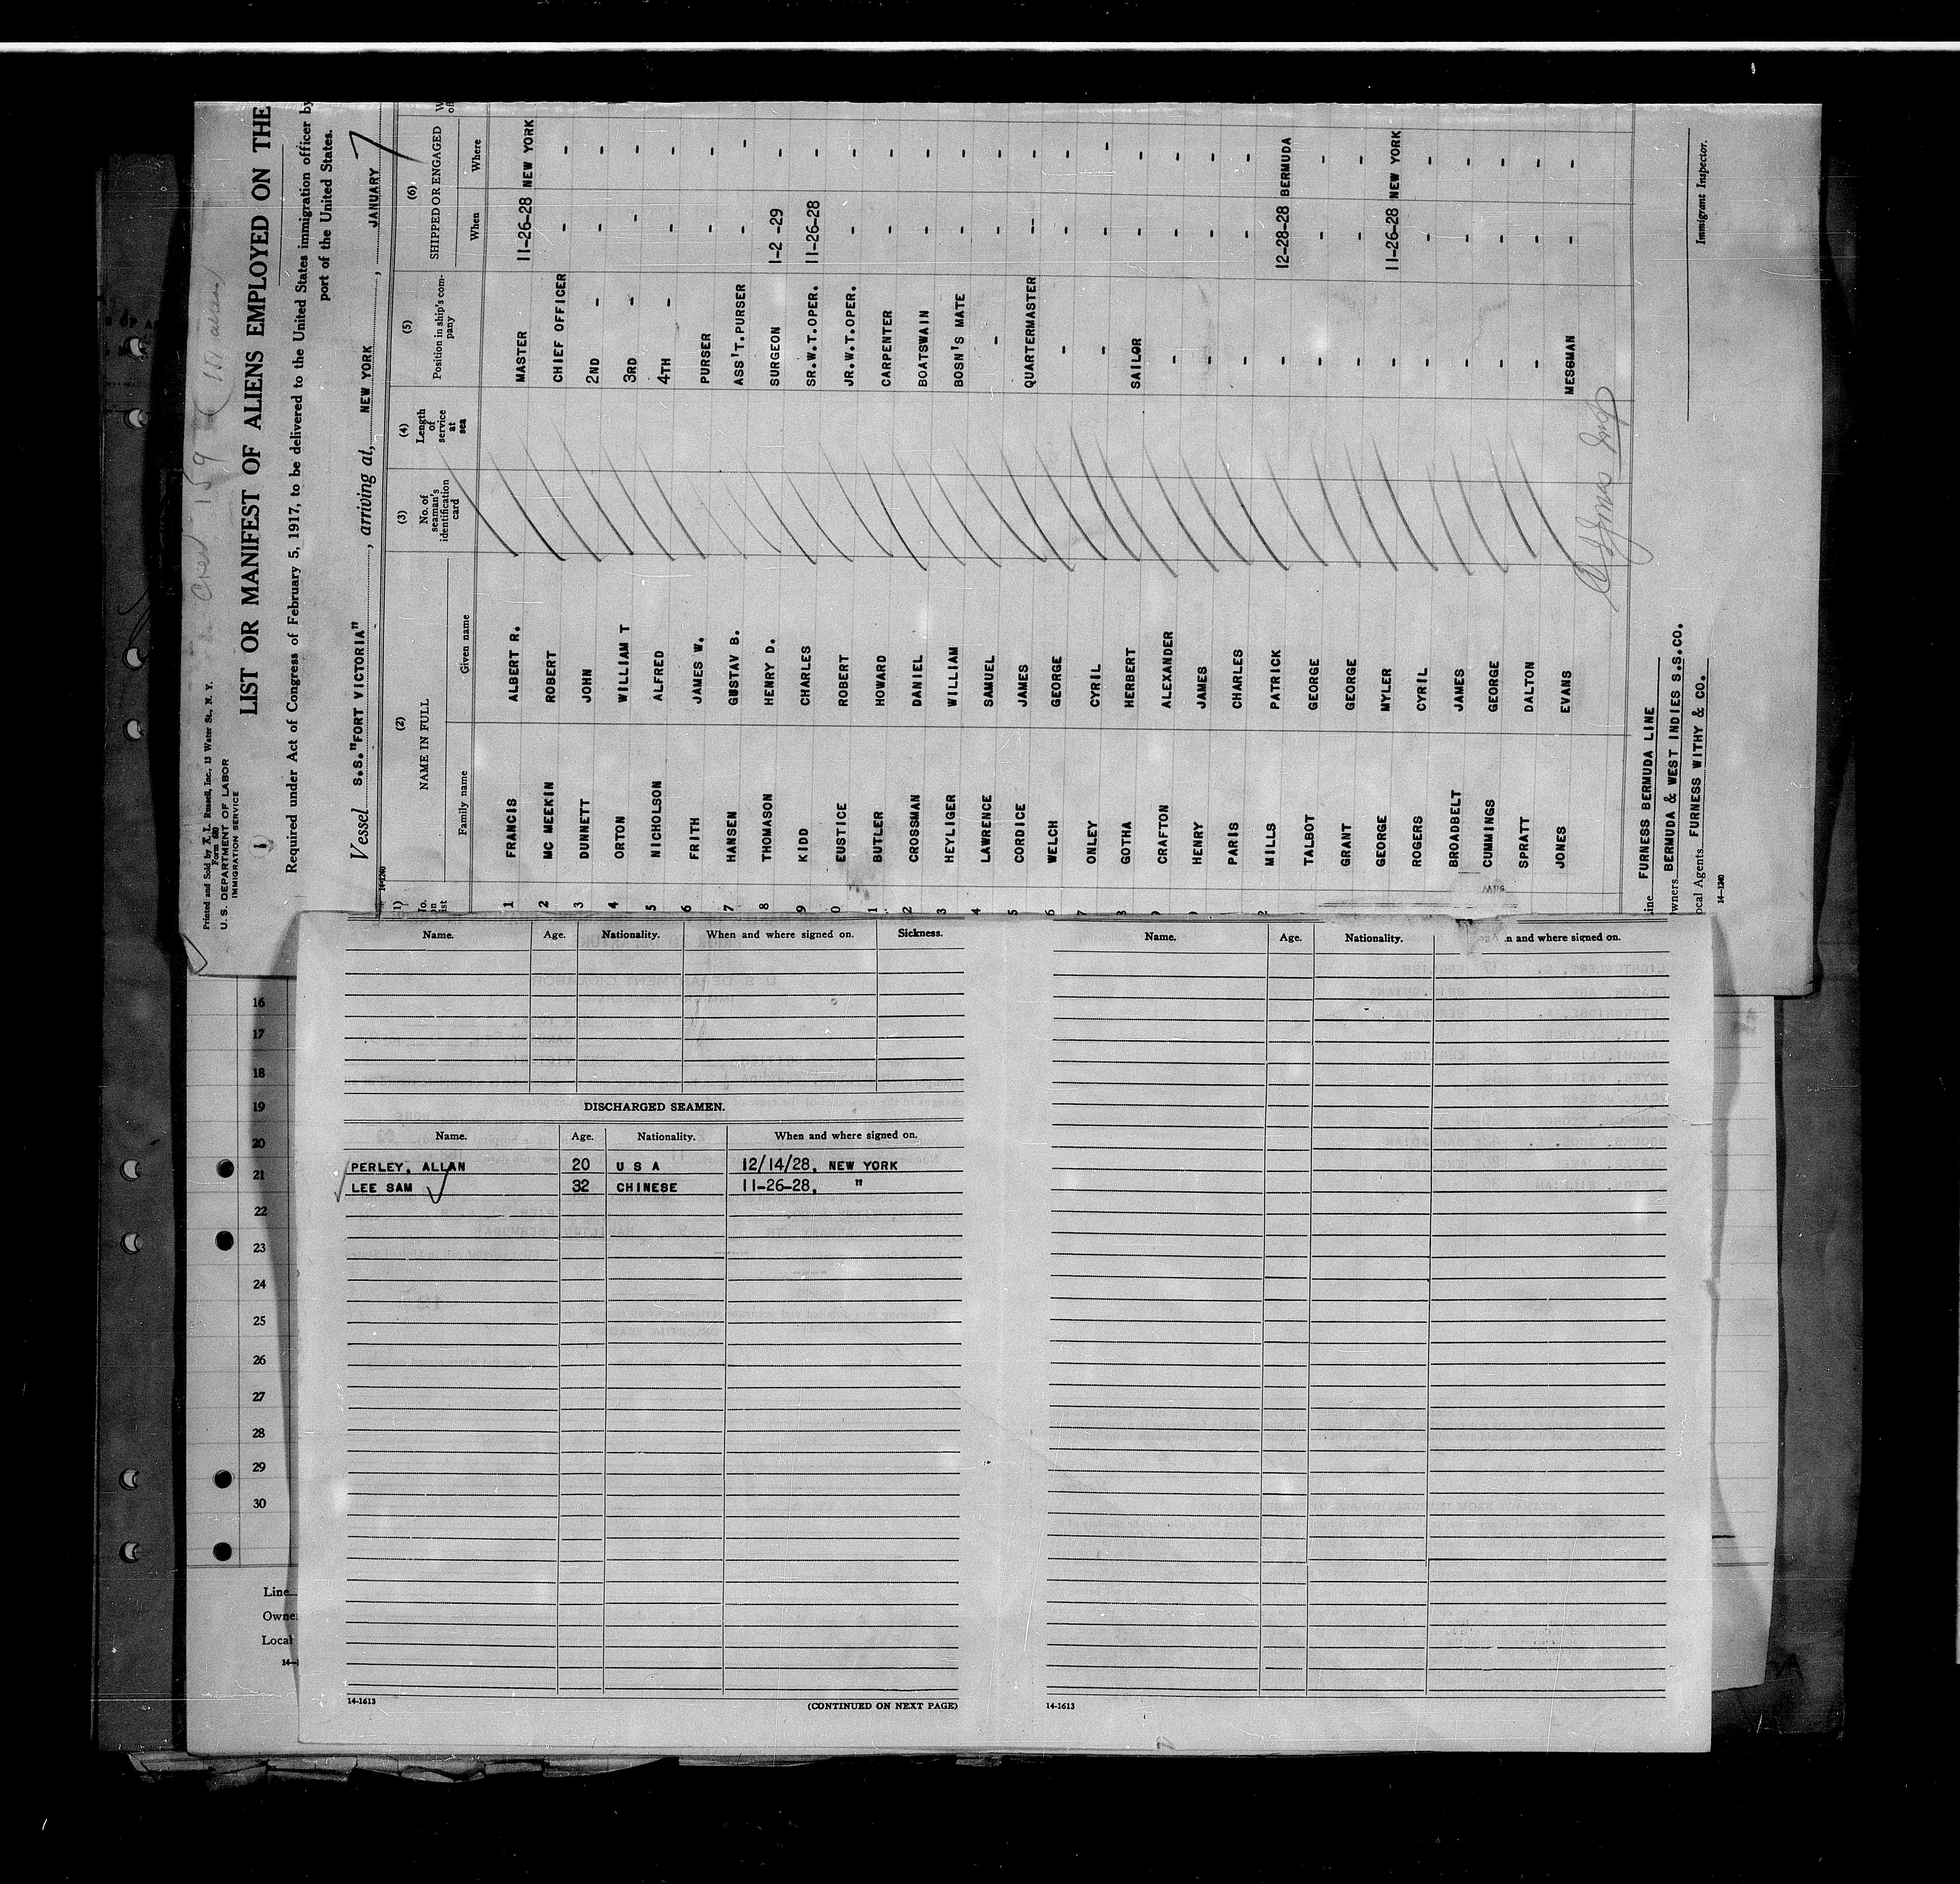 Printed and Sold by A. L. Russell, Inc., 13 Water St., N. Y.
Form 680
U. S. DEPARTMENT OF LABOR
IMMIGRATION SERVICE
1
Crew 159
LIST OR MANIFEST OF ALIENS EMPLOYED ON THE
Required under Act of Congress of February 5, 1917, to be delivered to the United States immigration officer by
port of the United States.
Vessel S.S."FORT VICTORIA", arriving at, NEW YORK, JANUARY 7
14-1240
(2) (3) (4) (5) (6)
NAME IN FULL No. of seaman's identification card Length of service at sea Position in ship's company SHIPPED OR ENGAGED
Family name Given name When Where
1 FRANCIS ALBERT R. MASTER 11-26-28 NEW YORK
2 MC MEEKIN ROBERT CHIEF OFFICER - -
3 DUNNETT JOHN 2ND - - -
4 ORTON WILLIAM T 3RD - - -
5 NICHOLSON ALFRED 4TH - - -
6 FRITH JAMES W. PURSER - -
7 HANSEN GUSTAV B. ASS'T.PURSER - -
8 THOMASON HENRY D. SURGEON 1-2 -29 -
9 KIDD CHARLES SR.W.T.OPER. 11-26-28 -
0 EUSTICE ROBERT JR.W.T.OPER. - -
1 BUTLER HOWARD CARPENTER - -
2 CROSSMAN DANIEL BOATSWAIN - -
3 HEYLIGER WILLIAM BOSN'S MATE - -
4 LAWRENCE SAMUEL - - -
5 CORDICE JAMES QUARTERMASTER -- -
6 WELCH GEORGE - - -
7 ONLEY CYRIL - - -
8 GOTHA HERBERT SAILOR - -
9 CRAFTON ALEXANDER - - -
HENRY JAMES - - -
PARIS CHARLES - - -
2 MILLS PATRICK - 12-28-28 BERMUDA
TALBOT GEORGE - - -
GRANT GEORGE - - -
GEORGE MYLER - 11-26-28 NEW YORK
ROGERS CYRIL - - -
BROADBELT JAMES - - -
CUMMINGS GEORGE - - -
SPRATT DALTON - - -
JONES EVANS MESSMAN - -
FURNESS BERMUDA LINE
Owners BERMUDA & WEST INDIES S.S.CO.
Local Agents FURNESS WITHY & CO.
14-1240
Immigrant Inspector.
Name. Age. Nationality. When and where signed on. Sickness.
DISCHARGED SEAMEN.
Name. Age. Nationality. When and where signed on.
PERLEY, ALLAN 20 U S A 12/14/28, NEW YORK
LEE SAM 32 CHINESE 11-26-28, "
14-1613
(CONTINUED ON NEXT PAGE)
Name. Age. Nationality. n and where signed on.
14-1613
16
17
18
19
20
21
22
23
24
25
26
27
28
29
30
Line
Owne
Local